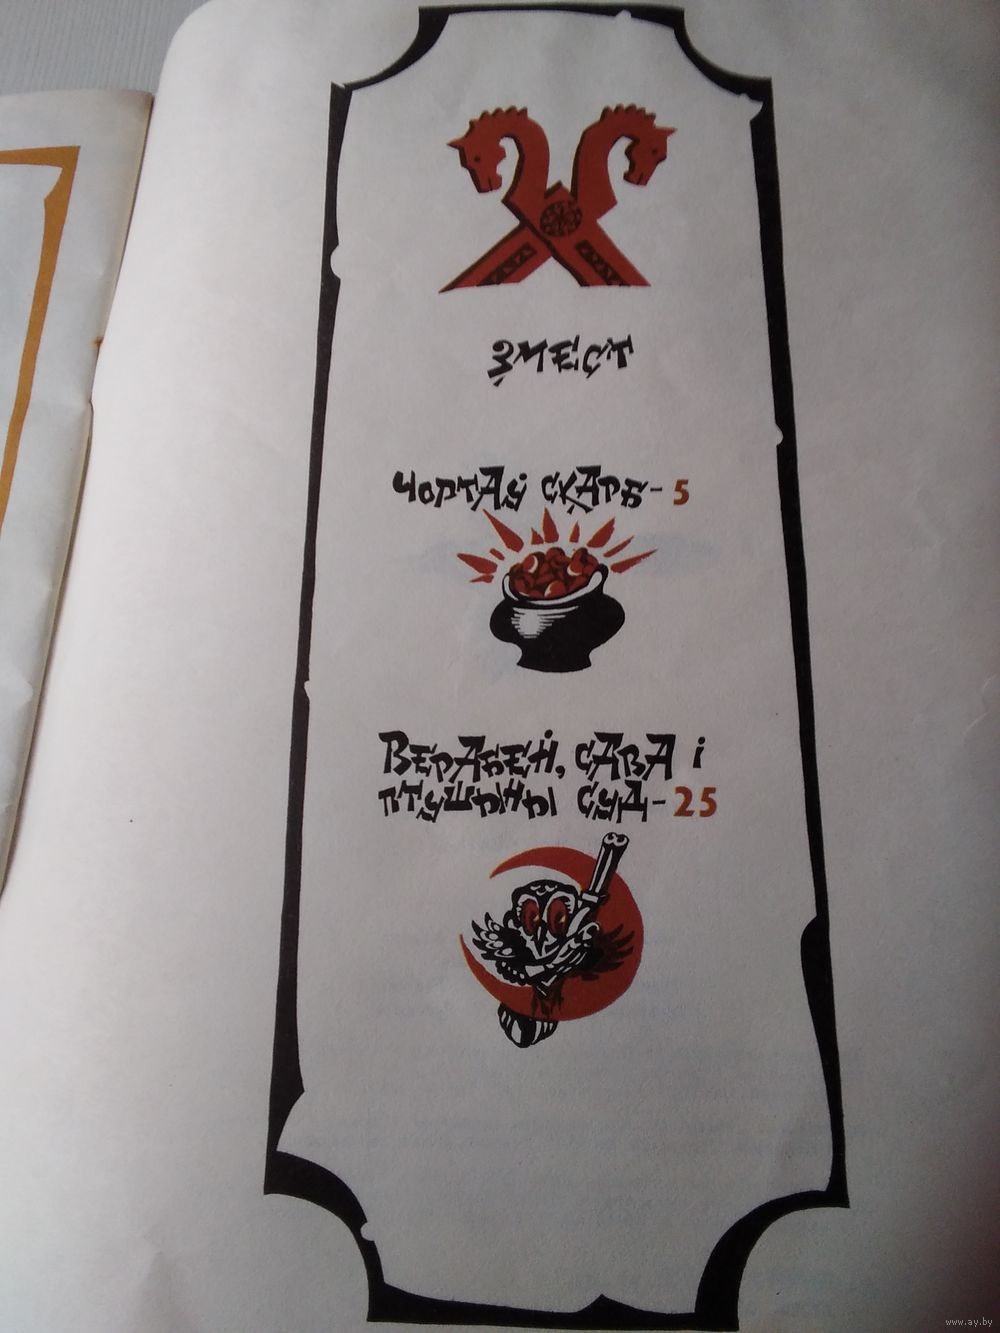 Змест
Чортаў скарб - 5
Верабей, сава і
птушыны суд - 25
www.ay.by